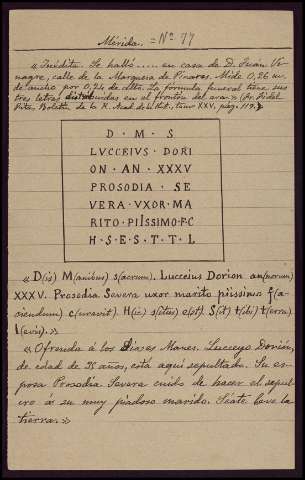 Mérida. = Nº 77
« Inédita. Se halló ..... en casa de D. Juan Vi-
nagre, calle de la Marquesa de Pinares. Mide 0,26 m.
de ancho por 0,24 de alto. La fórmula funeral tiene sus
tres letras distribuidas en el frontón del ara. » (Sr. Fidel
Fita, Boletín de la R. Acad. de la Hist., tomo XXV, pág. 119.)
D · M · S
LVCCEIVS DORI
ION · AN · XXXV
PROSODIA · SE
VERA · VXOR · MA
RITO · PIISSIMO · F · C
H · S · E · S · T · T · L
« D(is) M(anibus) s(acrum). Lucceius Dorion an(norum)
XXXV. Prosedia Severa uxor marito piissimo f(a-
ciendum) c(uravit). H(ic) s(itus) e(st). S(it) t(ibi) t(erra)
l(evis). »
« Ofrenda á los Dioses Manes. Lucceyo Dorión,
de edad de 35 años, está aquí sepultado. Su es-
posa Prosodia Severa cuidó de hacer el sepul-
cro á su muy piadoso marido. Séate leve la
tierra. »